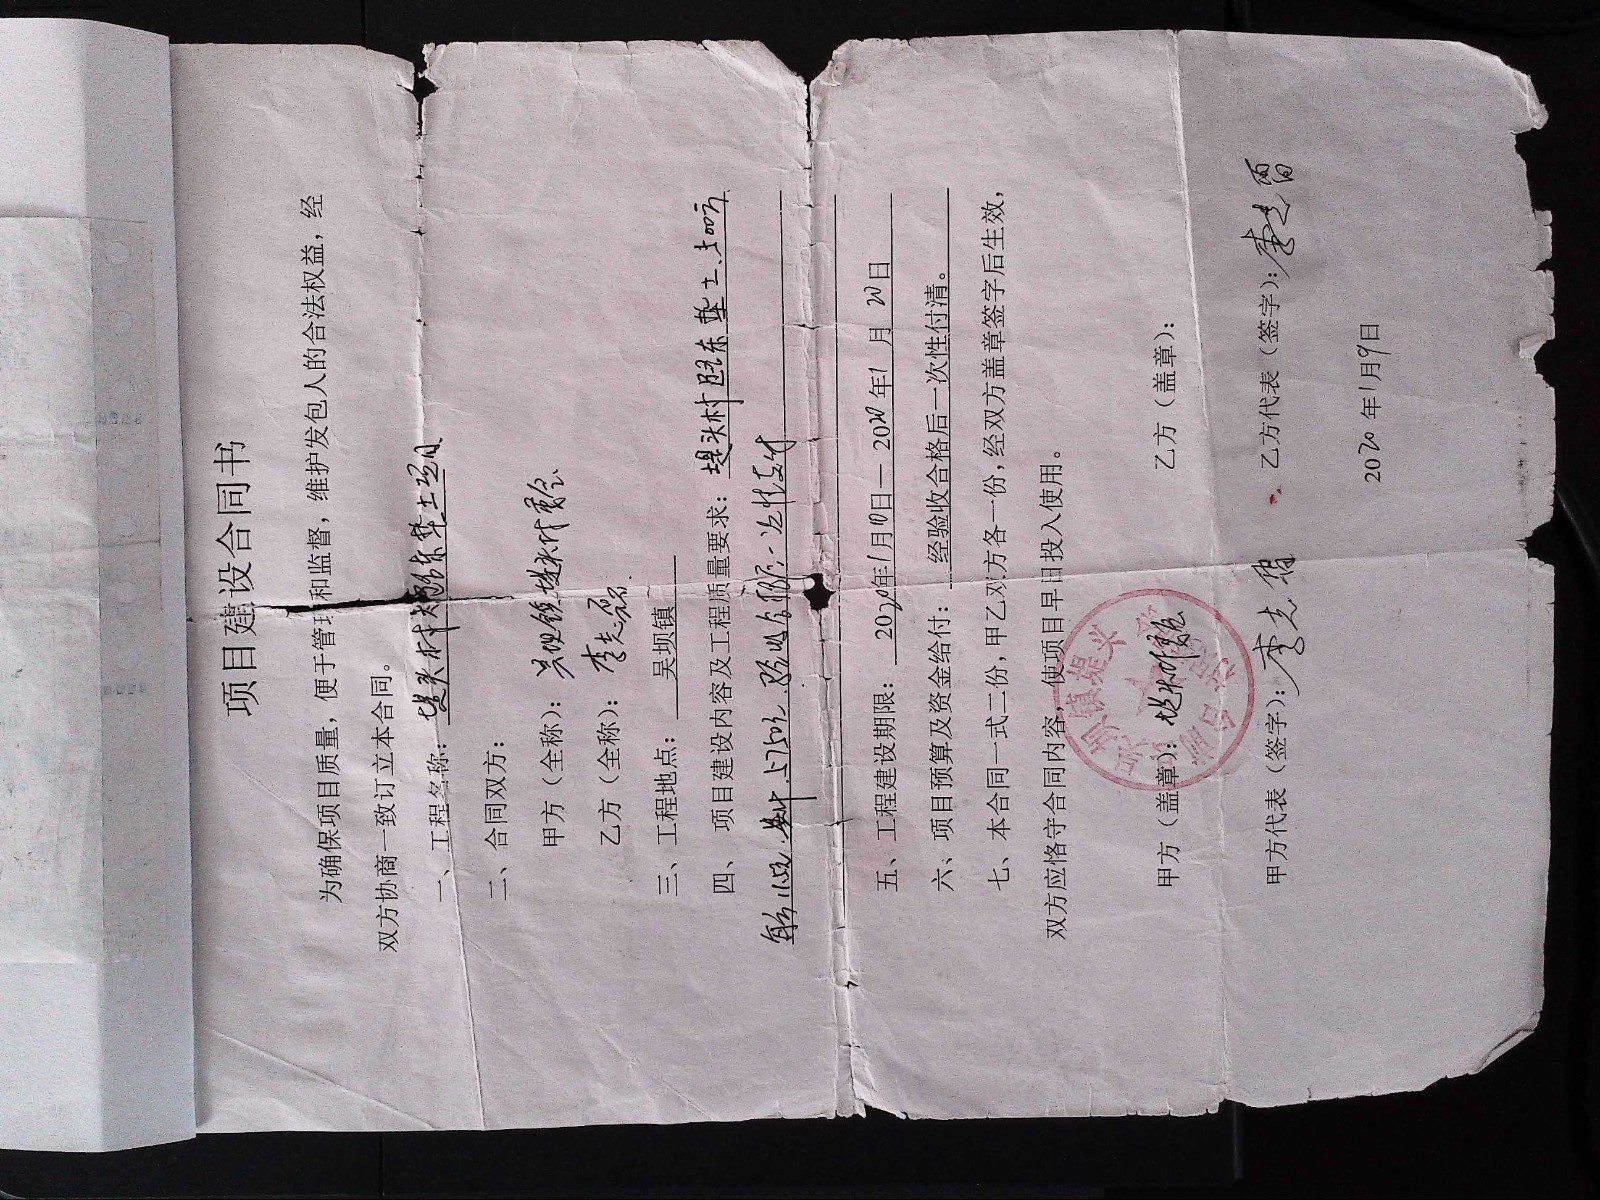 项目建设合同书
为确保项目质量，便于管理和监督，维护发包人的合法权益，经
双方协商一致订立本合同。
一、工程名称：堤头村大路东垫土项目
二、合同双方：
甲方（全称）：吴坝镇堤头村委会
乙方（全称）：李志
三、工程地点：吴坝镇
四、项目建设内容及工程质量要求：堤头村路东垫土、500方
每方11.5元、共计5750元、验收合格后一次性支付
五、工程建设期限：2020年1月10日—2020年1月20日
六、项目预算及资金给付：经验收合格后一次性付清。
七、本合同一式二份，甲乙双方各一份，经双方盖章签字后生效，
双方应恪守合同内容，使项目早日投入使用。
甲方（盖章）：堤头村委会 乙方（盖章）：
吴坝镇堤头
甲方代表（签字）：李志 乙方代表（签字）：李志
2020年1月9日